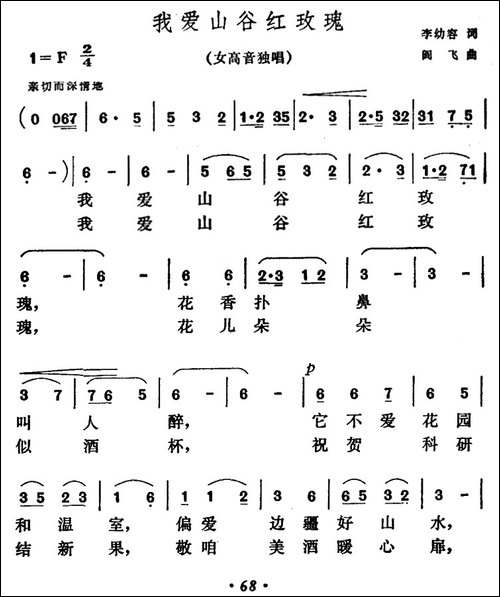 我爱山谷红玫瑰
李幼容 词
1=F 2/4 (女高音独唱) 阎飞 曲
亲切而深情地
(0 067 | 6· 5 | 5 3 2 | 1·2 35 | 2· 3 | 2·5 32 | 31 7 5 |
6 -) | 6 - | 6 - | 5 65 | 5 3 2 | 2· 3 | 1·2 71 |
我 爱 山 谷 红 玫
我 爱 山 谷 红 玫
6 - | 6 - | 6 6 | 2·3 12 | 3 - | 3 - |
瑰, 花 香 扑 鼻
瑰, 花 儿 朵 朵
p
3 7 | 76 5 | 6 - | 6 - | 6 6 7 | 6 5 |
叫 人 醉, 它 不 爱 花 园
似 酒 杯, 祝 贺 科 研
35 23 | 1 6 | 1 1 2 | 3 6 2 | 65 32 | 3 - |
和 温 室, 偏 爱 边 疆 好 山 水,
结 新 果, 敬 咱 美 酒 暖 心 扉,
· 68 ·